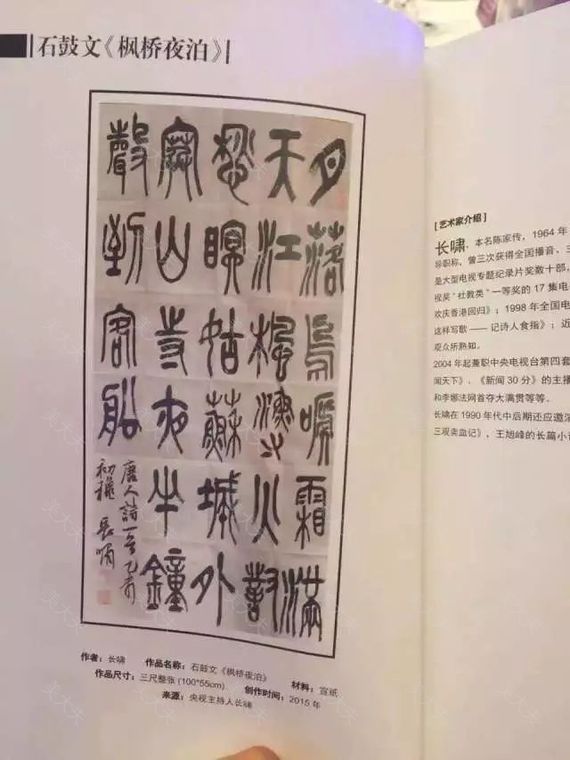 石鼓文《枫桥夜泊》
月落烏啼霜滿
天江楓漁火對
愁眠姑蘇城外
寒山寺夜半鐘
聲到客船
唐人詩一首乙未
初穐 長嘯
作者：长啸 作品名称：石鼓文《枫桥夜泊》 材料：宣纸
作品尺寸：三尺整张 (100*55cm) 创作时间：2015 年
来源：央视主持人长啸
[ 艺术家介绍 ]
长啸，本名陈家传，1964 年
导职称、曾三次获得全国播音、
是大型电视专题纪录片奖数十部，
视奖“社教类”一等奖的 17 集电
欢庆香港回归》；1998 年全国电
这样写歌 —— 记诗人食指》；近
观众所熟知。
2004 年起兼职中央电视台第四套
闻天下》、《新闻 30 分》的主播
和李娜法网首夺大满贯等等。
长啸在 1990 年代中后期还应邀
三观卖血记》，王旭峰的长篇小说